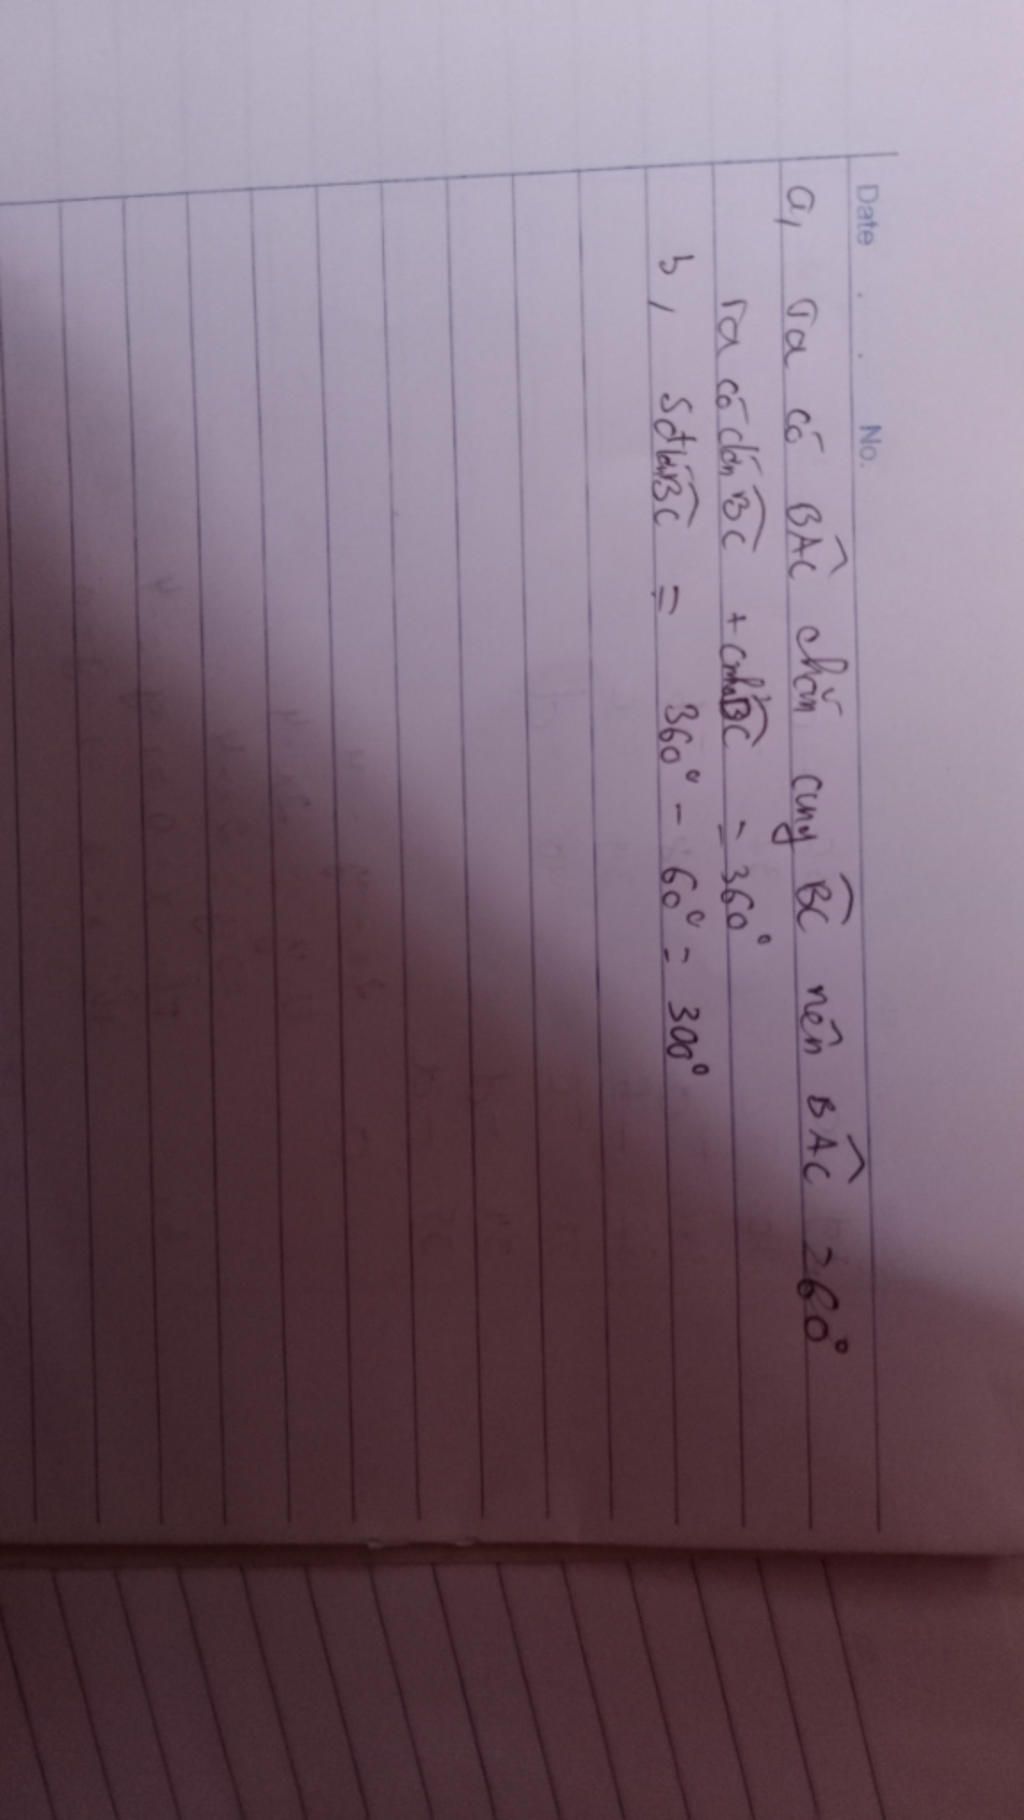 Date . . No.
a, Ta có BÂC chắn cung BC nên BAC = 60°
Ta có clớn BC + cnhỏ BC = 360°
b, Sđ lớn BC = 360° - 60° = 300°